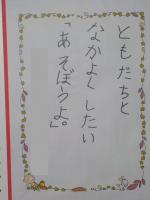 ともだちと
なかよくしたい
「あそぼうよ」。